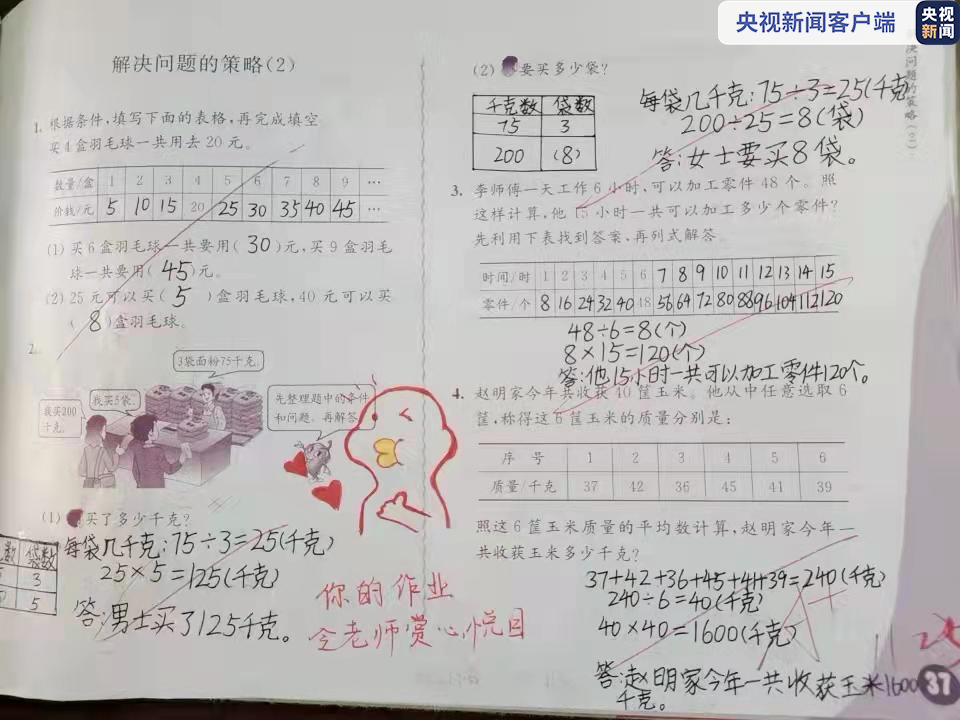 央视新闻客户端
央视
新闻
解决问题的策略(2)
1. 根据条件,填写下面的表格,再完成填空。
买4盒羽毛球一共用去20元。
数量/盒 1 2 3 4 5 6 7 8 9 …
价钱/元 5 10 15 20 25 30 35 40 45 …
(1) 买6盒羽毛球一共要用( 30 )元,买9盒羽毛
球一共要用( 45 )元。
(2) 25元可以买( 5 )盒羽毛球,40元可以买
( 8 )盒羽毛球。
2.
3袋面粉75千克。
我买200
千克。
我买5袋。
先整理题中的条件
和问题,再解答。
(1) 买了多少千克?
数 袋数
3
5
每袋几千克:75÷3=25(千克)
25×5=125(千克)
答:男士买了125千克。
你的作业
令老师赏心悦目
(2) 要买多少袋?
千克数 袋数
75 3
200 (8)
每袋几千克:75÷3=25(千克
200÷25=8(袋)
答:女士要买8袋。
3. 李师傅一天工作6小时,可以加工零件48个。照
这样计算,他15小时一共可以加工多少个零件?
先利用下表找到答案,再列式解答。
时间/时 1 2 3 4 5 6 7 8 9 10 11 12 13 14 15
零件/个 8 16 24 32 40 48 56 64 72 80 88 96 104 112 120
48÷6=8(个)
8×15=120(个)
答:他15小时一共可以加工零件120个。
4. 赵明家今年共收获40筐玉米。他从中任意选取6
筐,称得这6筐玉米的质量分别是:
序号 1 2 3 4 5 6
质量/千克 37 42 36 45 41 39
照这6筐玉米质量的平均数计算,赵明家今年一
共收获玉米多少千克?
37+42+36+45+41+39=240(千克)
240÷6=40(千克)
40×40=1600(千克)
答:赵明家今年一共收获玉米1600
千克。
A+
11
25
37
决问题的策略(2)